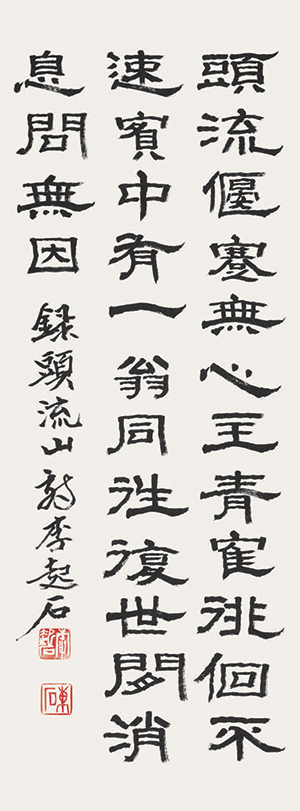 頭流偃蹇無心主青寉徘徊不
速賓中有一翁同往復世閒消
息問無因 録頭流山詩李起石